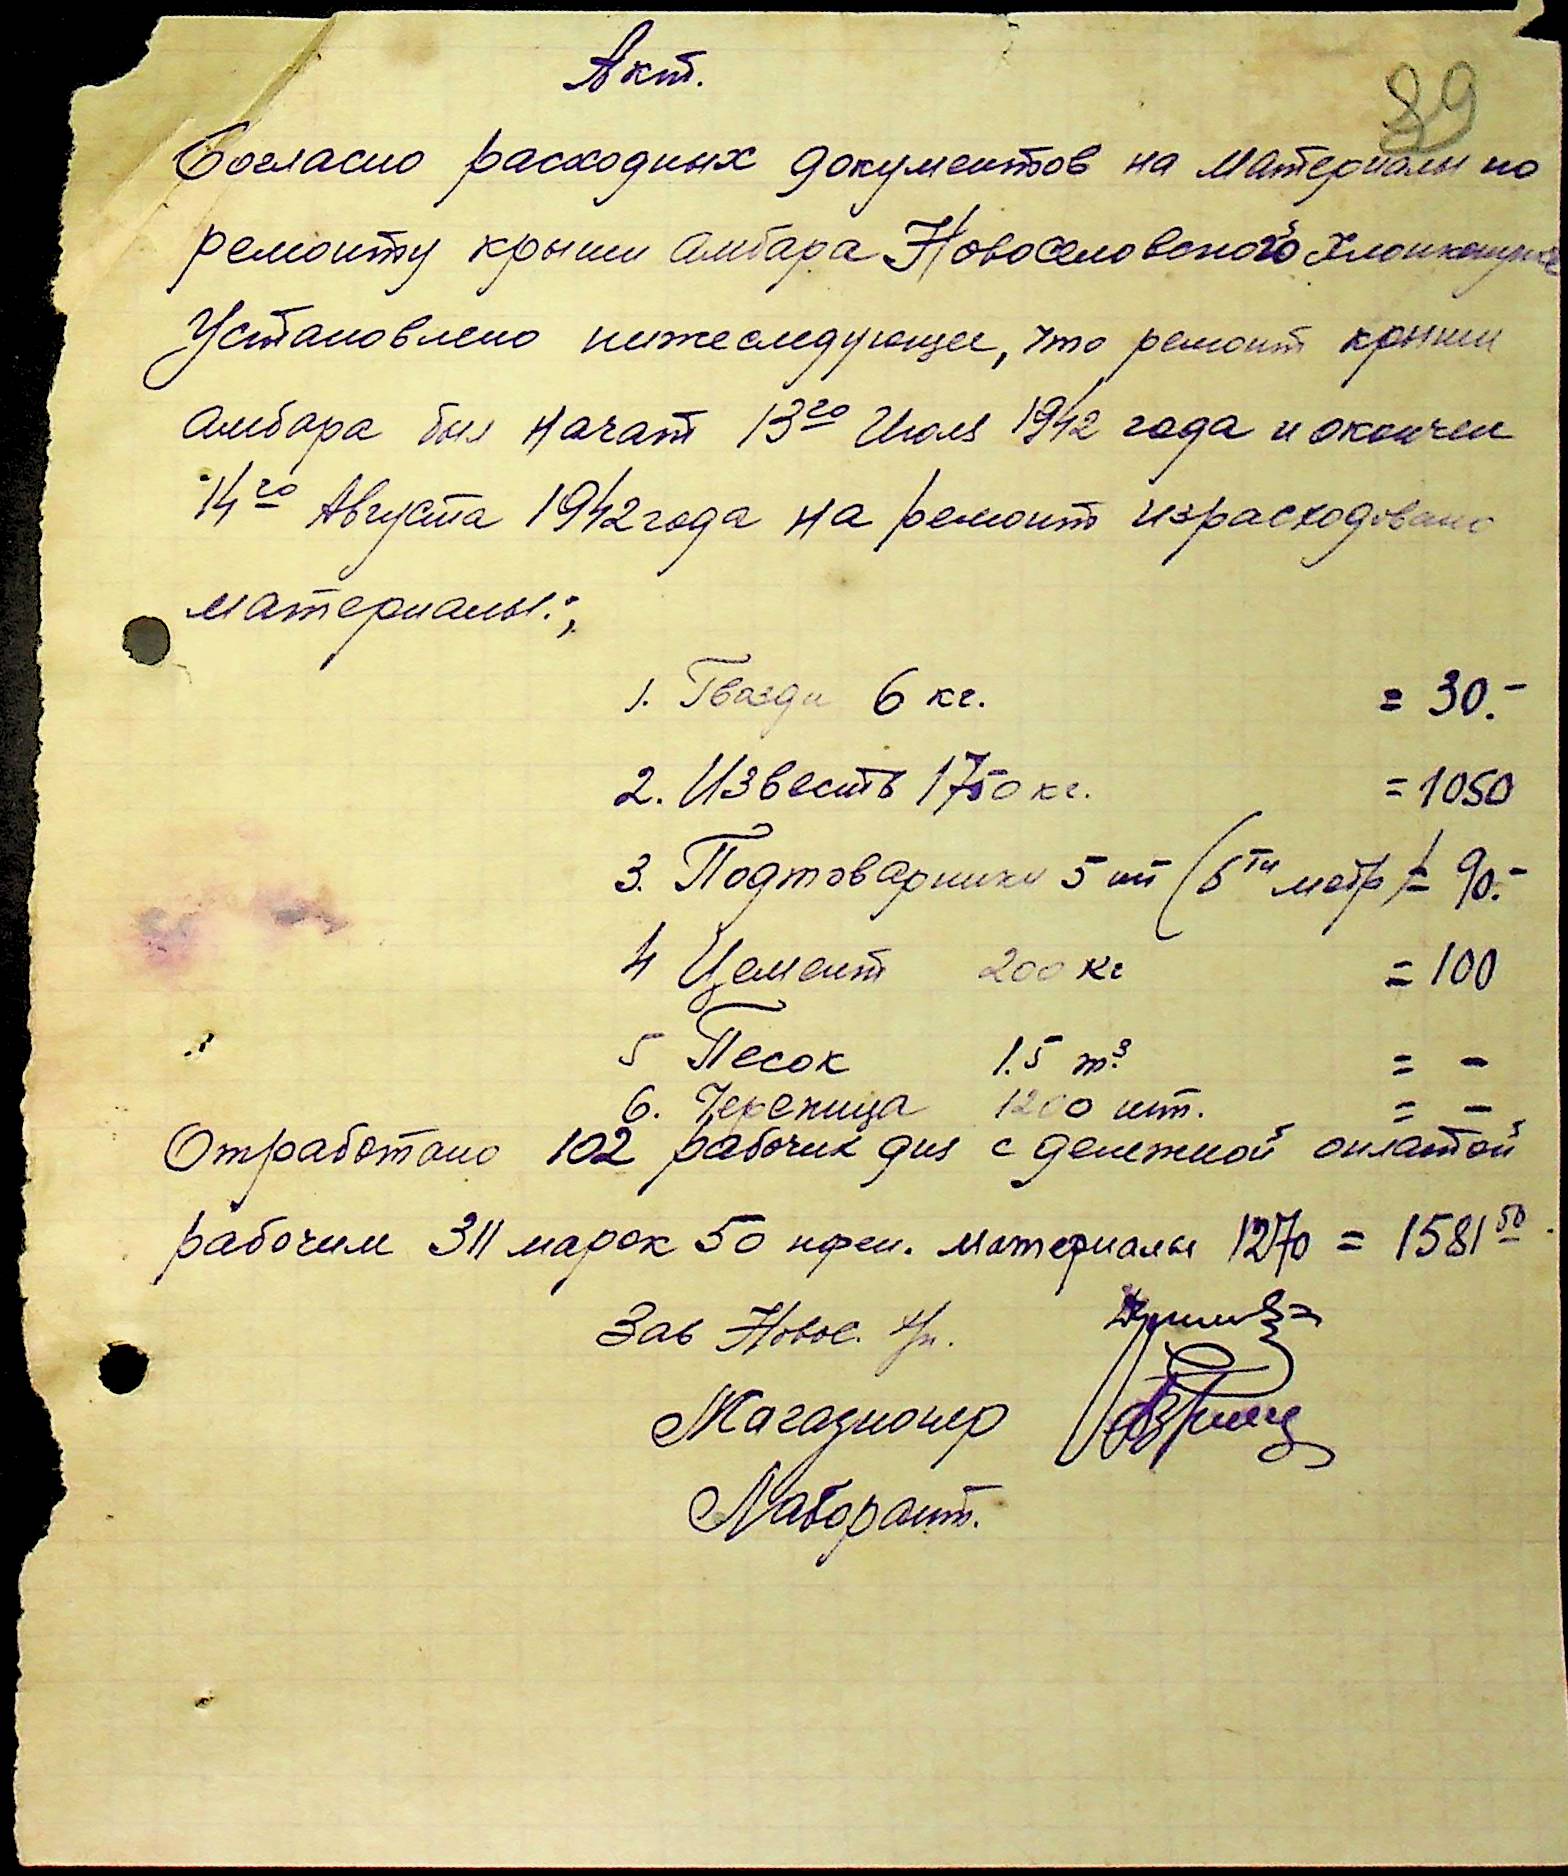 Акт.
89
Согласно расходных документов на материалы по
ремонту крыши амбара Новоселовского Хлопкопункта
Установлено нижеследующее, что ремонт крыши
амбара был начат 13го Июля 1942 года и окончен
14го Августа 1942 года на ремонт израсходовано
материалы:;
1. Гвозди 6 кг. = 30.-
2. Известь 1750 кг. = 1050
3. Подтоварники 5 шт (6ти метр) = 90.-
4 Цемент 200 кг = 100
5 Песок 1.5 m³. = -
6. Черепица 1200 шт. = -
Отработано 102 рабочих дня с денежной оплатой
рабочим 311 марок 50 пфен. материалы 1270 = 1581 50
Зав Новос. х/п.
Магазионер
Лаборант.